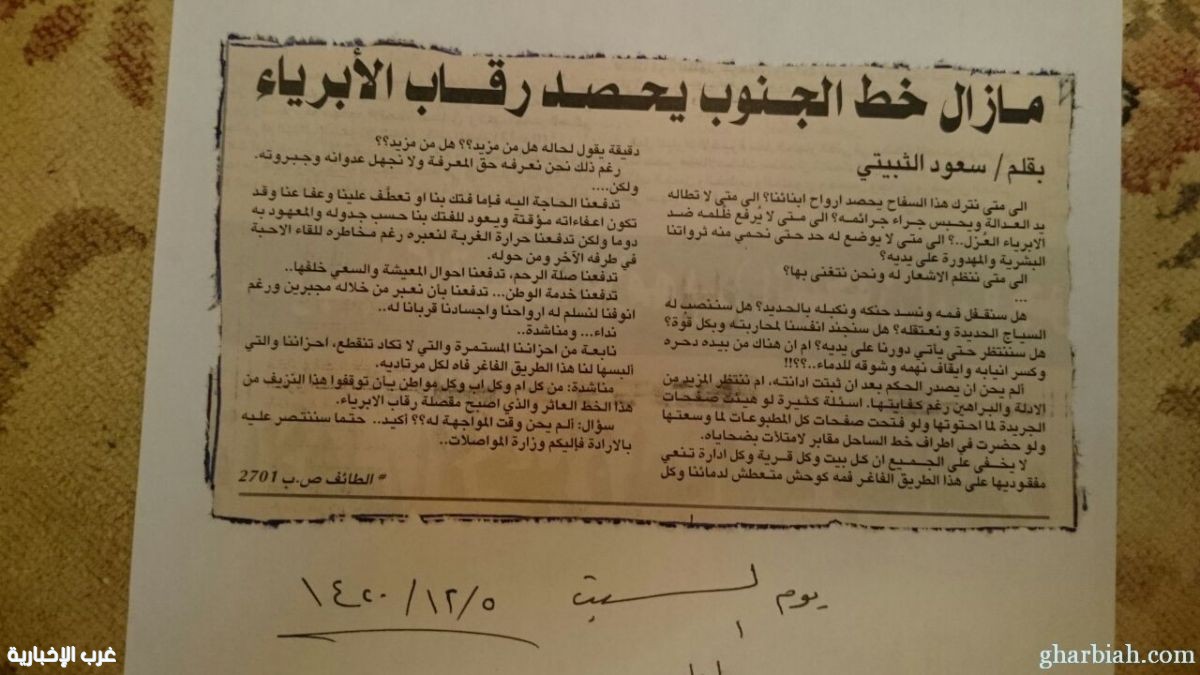 مازال خط الجنوب يحصد رقاب الأبرياء
بقلم/ سعود الثبيتي
الى متى نترك هذا السفاح يحصد ارواح ابنائنا؟ الى متى لا تطاله
يد العدالة ويحبس جراء جرائمه؟ الى متى لا يُرفع ظلمه ضد
الابرياء العُزل..؟ الى متى لا يوضع له حد حتى نحمي منه ثرواتنا
البشرية والمهدورة على يديه؟
الى متى ننظم الاشعار له ونحن نتغنى بها؟
...
هل سنقفل فمه ونسد حنكه ونكبله بالحديد؟ هل سننصب له
السياج الحديدة ونعتقله؟ هل سنجند انفسنا لمحاربته وبكل قوة؟
هل سننتظر حتى يأتي دورنا على يديه؟ ام ان هناك من بيده دحره
وكسر انيابه وايقاف نهمه وشوقه للدماء..؟؟!!
ألم يحن ان يصدر الحكم بعد ان ثبتت ادانته، ام ننتظر المزيد من
الادلة والبراهين رغم كفايتها. اسئلة كثيرة لو هيئت صفحات
الجريدة لما احتوتها ولو فتحت صفحات كل المطبوعات لما وسعتها
ولو حضرت في اطراف خط الساحل مقابر لامتلأت بضحاياه.
لا يخفى على الجميع ان كل بيت وكل قرية وكل ادارة تنعي
مفقوديها على هذا الطريق الفاغر فمه كوحش متعطش لدمائنا وكل
دقيقة يقول لحاله هل من مزيد؟؟ هل من مزيد؟؟
رغم ذلك نحن نعرفه حق المعرفة ولا نجهل عدوانه وجبروته.
ولكن....
تدفعنا الحاجة اليه فإما فتك بنا او تعطّف علينا وعفا عنا وقد
تكون اعفاءاته مؤقتة ويعود للفتك بنا حسب جدوله والمعهود به
دوما ولكن تدفعنا حرارة الغربة لنعبره رغم مخاطره للقاء الاحبة
في طرفه الآخر ومن حوله.
تدفعنا صلة الرحم، تدفعنا احوال المعيشة والسعي خلفها..
تدفعنا خدمة الوطن... تدفعنا بأن نعبر من خلاله مجبرين ورغم
انوفنا لنسلم له ارواحنا واجسادنا قربانا له..
نداء... ومناشدة..
نابعة من احزاننا المستمرة والتي لا تكاد تنقطع، احزاننا والتي
ألبسها لنا هذا الطريق الفاغر فاه لكل مرتاديه.
مناشدة: من كل ام وكل اب وكل مواطن بأن توقفوا هذا النزيف من
هذا الخط العاثر والذي اصبح مقصلة رقاب الابرياء.
سؤال: ألم يحن وقت المواجهة له؟؟ أكيد.. حتما سننتصر عليه
بالارادة فإليكم وزارة المواصلات..
* الطائف ص.ب 2701
يوم السبت
١٤٢٠/١٢/٥
غرب الإخبارية
gharbiah.com